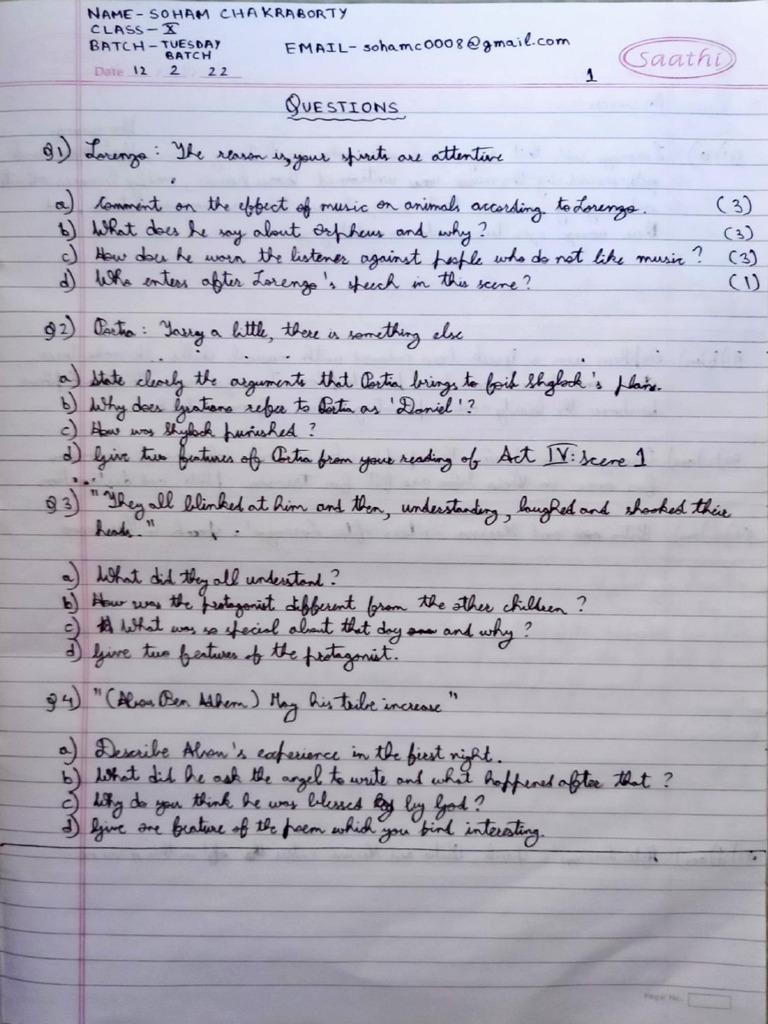 NAME- SOHAM CHAKRABORTY
CLASS- X
BATCH- TUESDAY BATCH
EMAIL- sohamc0008@gmail.com
Saathi
Date 12 2 22
1
QUESTIONS
Q1) Lorenzo: The reason is, your spirits are attentive
a) Comment on the effect of music on animals according to Lorenzo. (3)
b) What does he say about Orpheus and why? (3)
c) How does he warn the listener against people who do not like music? (3)
d) Who enters after Lorenzo's speech in this scene? (1)
Q2) Portia: Tarry a little, there is something else
a) State clearly the arguments that Portia brings to foil Shylock's plans.
b) Why does Gratiano refer to Portia as 'Daniel'?
c) How was Shylock punished?
d) Give two features of Portia from your reading of Act IV: Scene 1
Q3) "They all blinked at him and then, understanding, laughed and shooked their
heads."
a) What did they all understand?
b) How was the protagonist different from the other children?
c) What was so special about that day and why?
d) Give two features of the protagonist.
Q4) "(Abou Ben Adhem) May his tribe increase"
a) Describe Abou's experience in the first night.
b) What did he ask the angel to write and what happened after that?
c) Why do you think he was blessed by God?
d) Give one feature of the poem which you find interesting.
Page No.